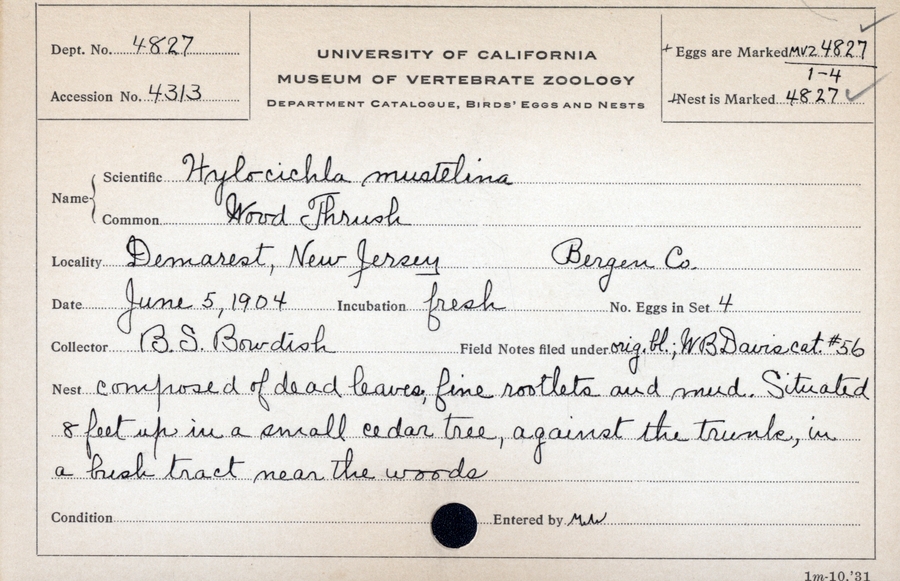 Dept. No. 4827
Accession No. 4313
UNIVERSITY OF CALIFORNIA
MUSEUM OF VERTEBRATE ZOOLOGY
DEPARTMENT CATALOGUE, BIRDS' EGGS AND NESTS
+ Eggs are Marked MVZ 4827
1-4
+Nest is Marked 4827
Name
Scientific Hylocichla mustelina
Common Wood Thrush
Locality Demarest, New Jersey Bergen Co.
Date June 5, 1904 Incubation fresh No. Eggs in Set 4
Collector B.S. Bowdish Field Notes filed under orig. bl.; WB Davis cat. #56
Nest composed of dead leaves, fine rootlets and mud. Situated
8 feet up in a small cedar tree, against the trunk, in
a bush tract near the woods
Condition Entered by
1m-10,'31